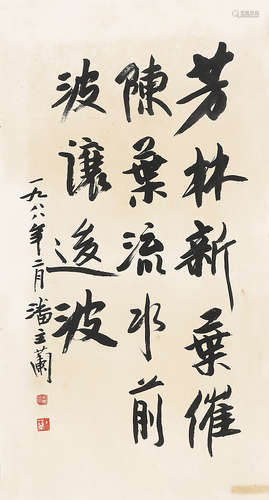 芳林新葉催
陳葉流水前
波讓後波
一九八八年二月潘主蘭